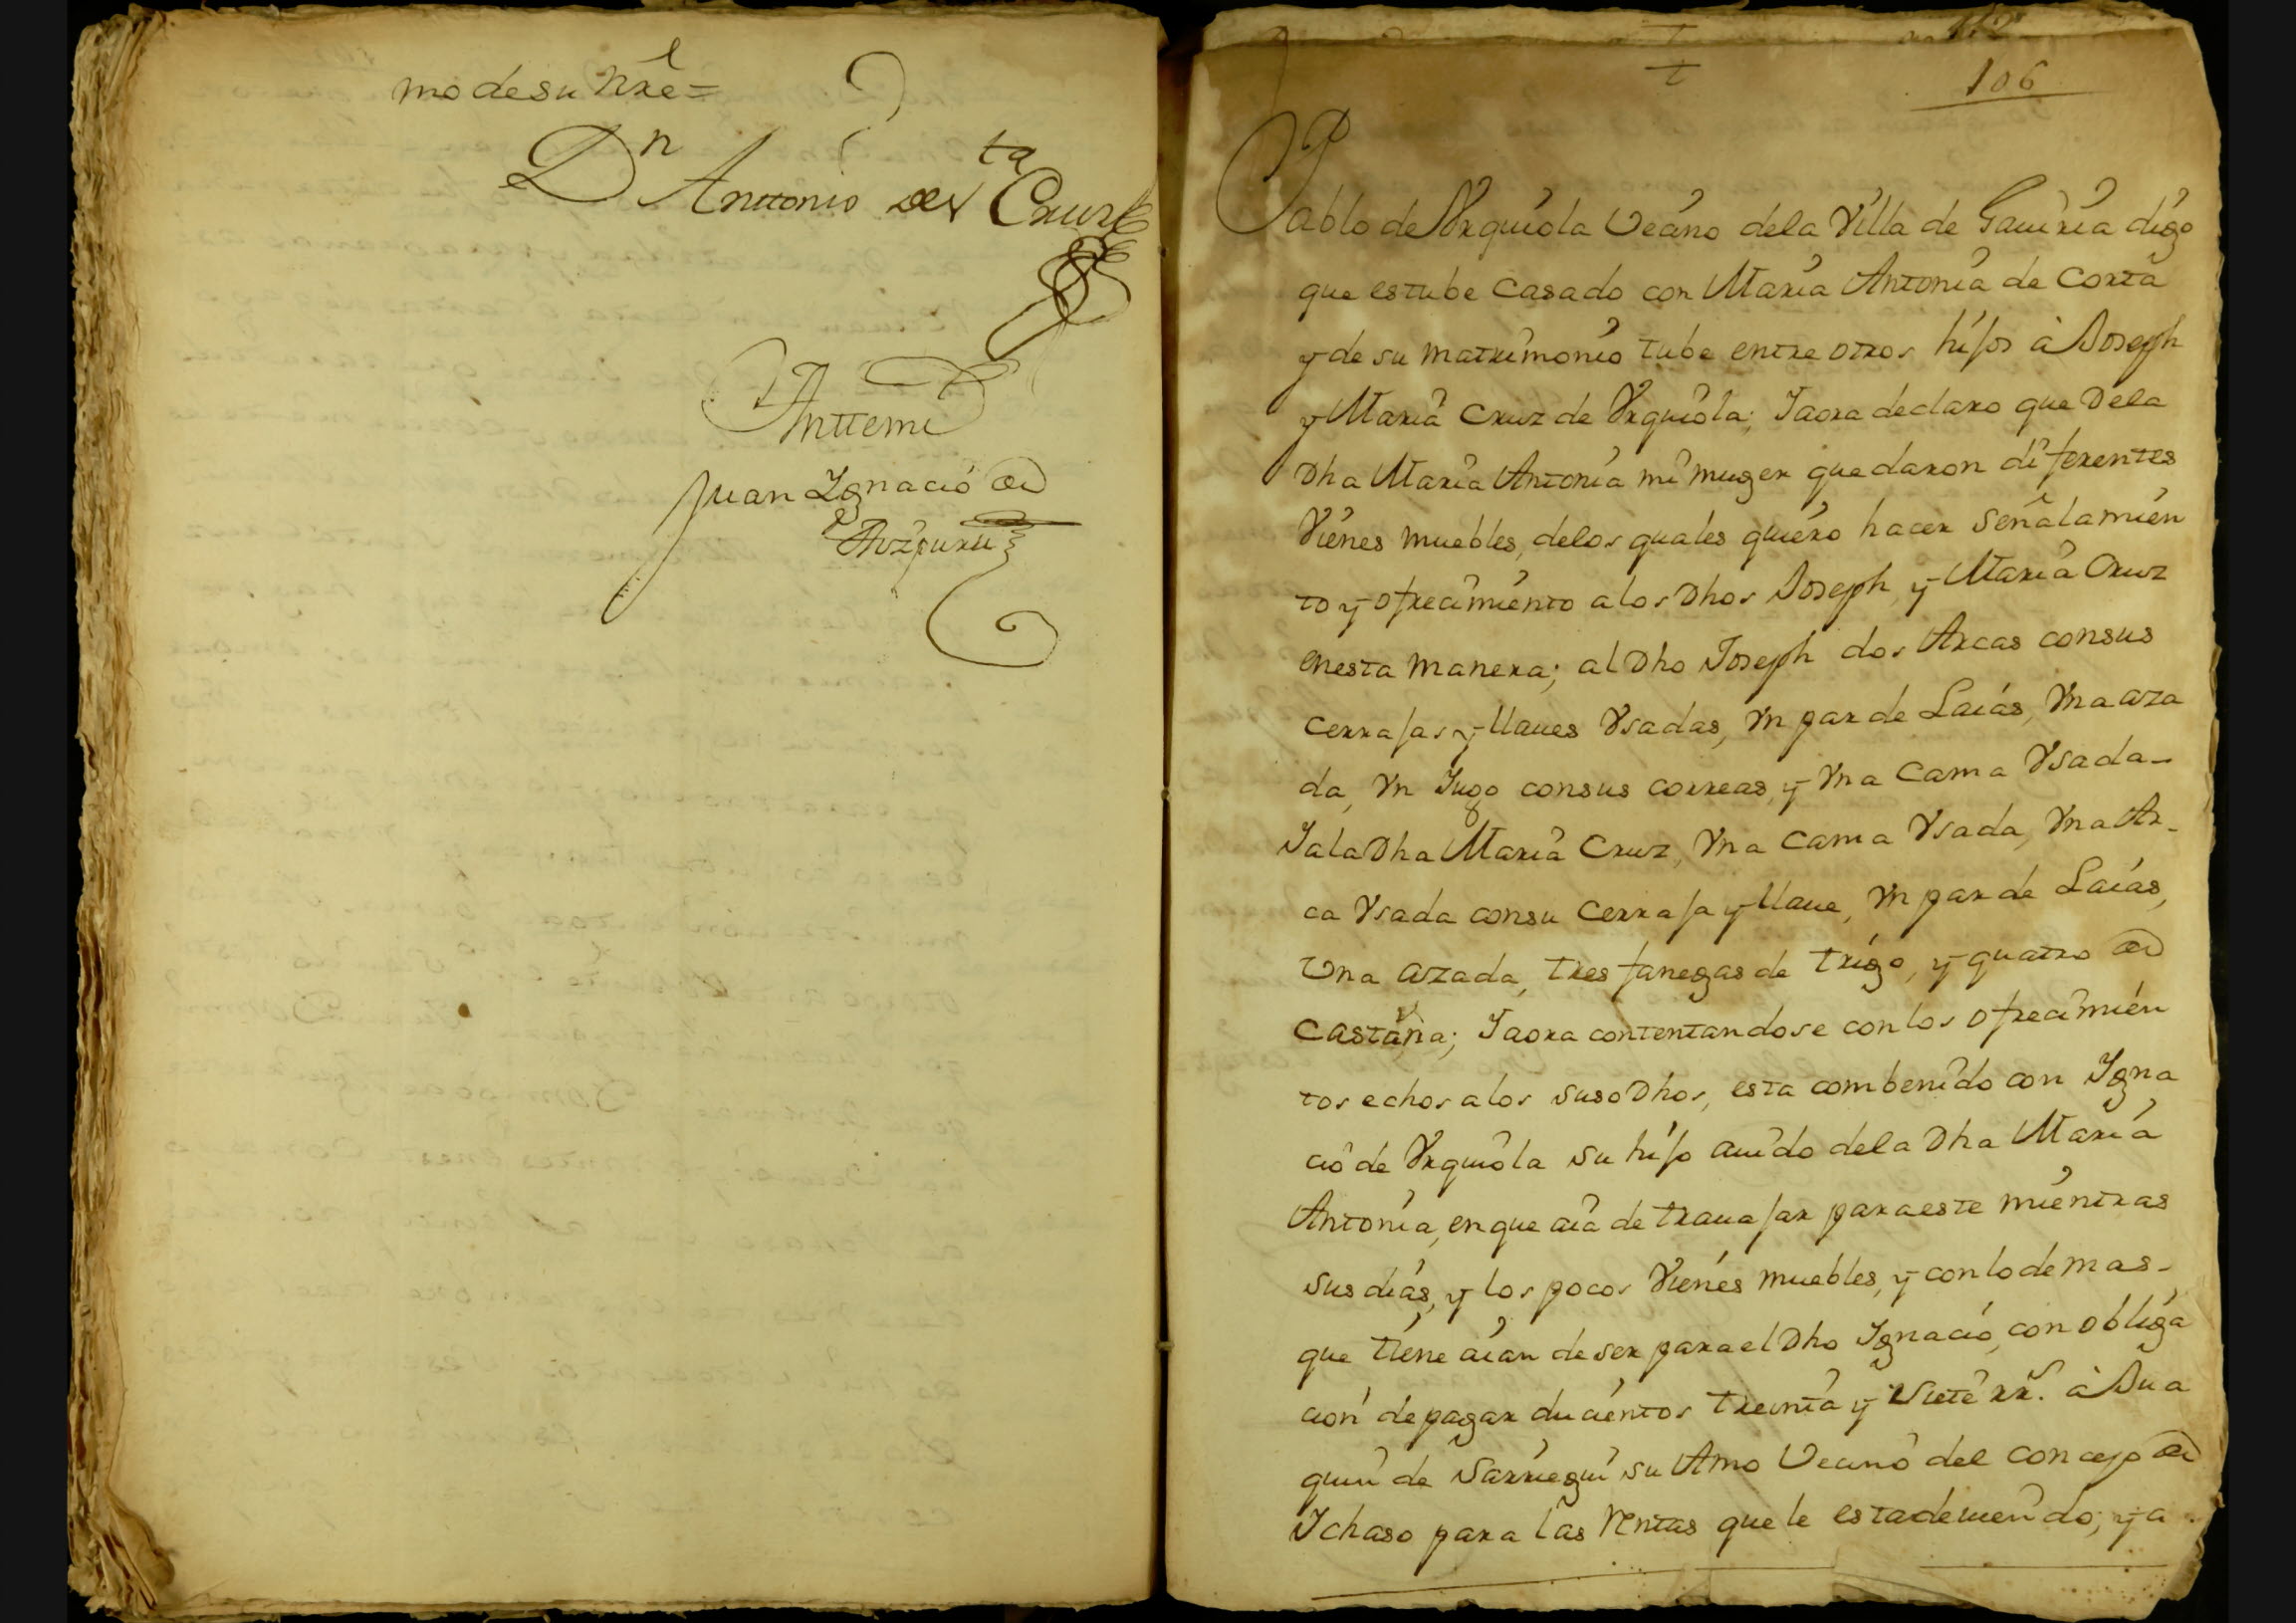 mo de su Nre =
Dn Anttonio de sta Cruz
Antte mi
Juan Ignacio de
Aozpuru
106
Pablo de Vrquiola Vecino dela Villa de Gauiria digo
que estube Casado con Maria Antonia de Corta
y de su matrimonio tube entre otros hijos à Joseph
y Maria Cruz de Vrquiola; Iaora declaro que Dela
Dha Maria Antonia mi muger quedaron diferentes
Vienes muebles, delos quales quiero hacer Señalamien
to y ofrecimiento alos Dhos Joseph, y Maria Cruz
enesta manera; al Dho Joseph dos Arcas consus
cerrajas y llaues Vsadas, Vn par de Laias, Vna aza
da, Vn Iugo consus correas, y Vna Cama Vsada_
Iala Dha Maria Cruz, Vna Cama Vsada, Vna Ar_
ca Vsada consu Cerraja y llaue, Vn par de Laias,
Vna azada, tres fanegas de trigo, y quatro de
Castaña; Iaora contentandose conlos ofrecimien
tos echos alos susoDhos, esta combenido con Igna
cio de Vrquiola su hijo auido dela Dha Maria
Antonia, enque aia de trauajar paraeste mientras
sus dias, y los pocos Vienes muebles, y conlo demas_
que tiene aian deser parael Dho Ignacio, con obliga
cion de pagar ducientos treinta y Siete rrs. à Jua
quin de Sarriegui su Amo Vecino del Concejo de
Ichaso para las Rentas que le estadeuiendo; y a